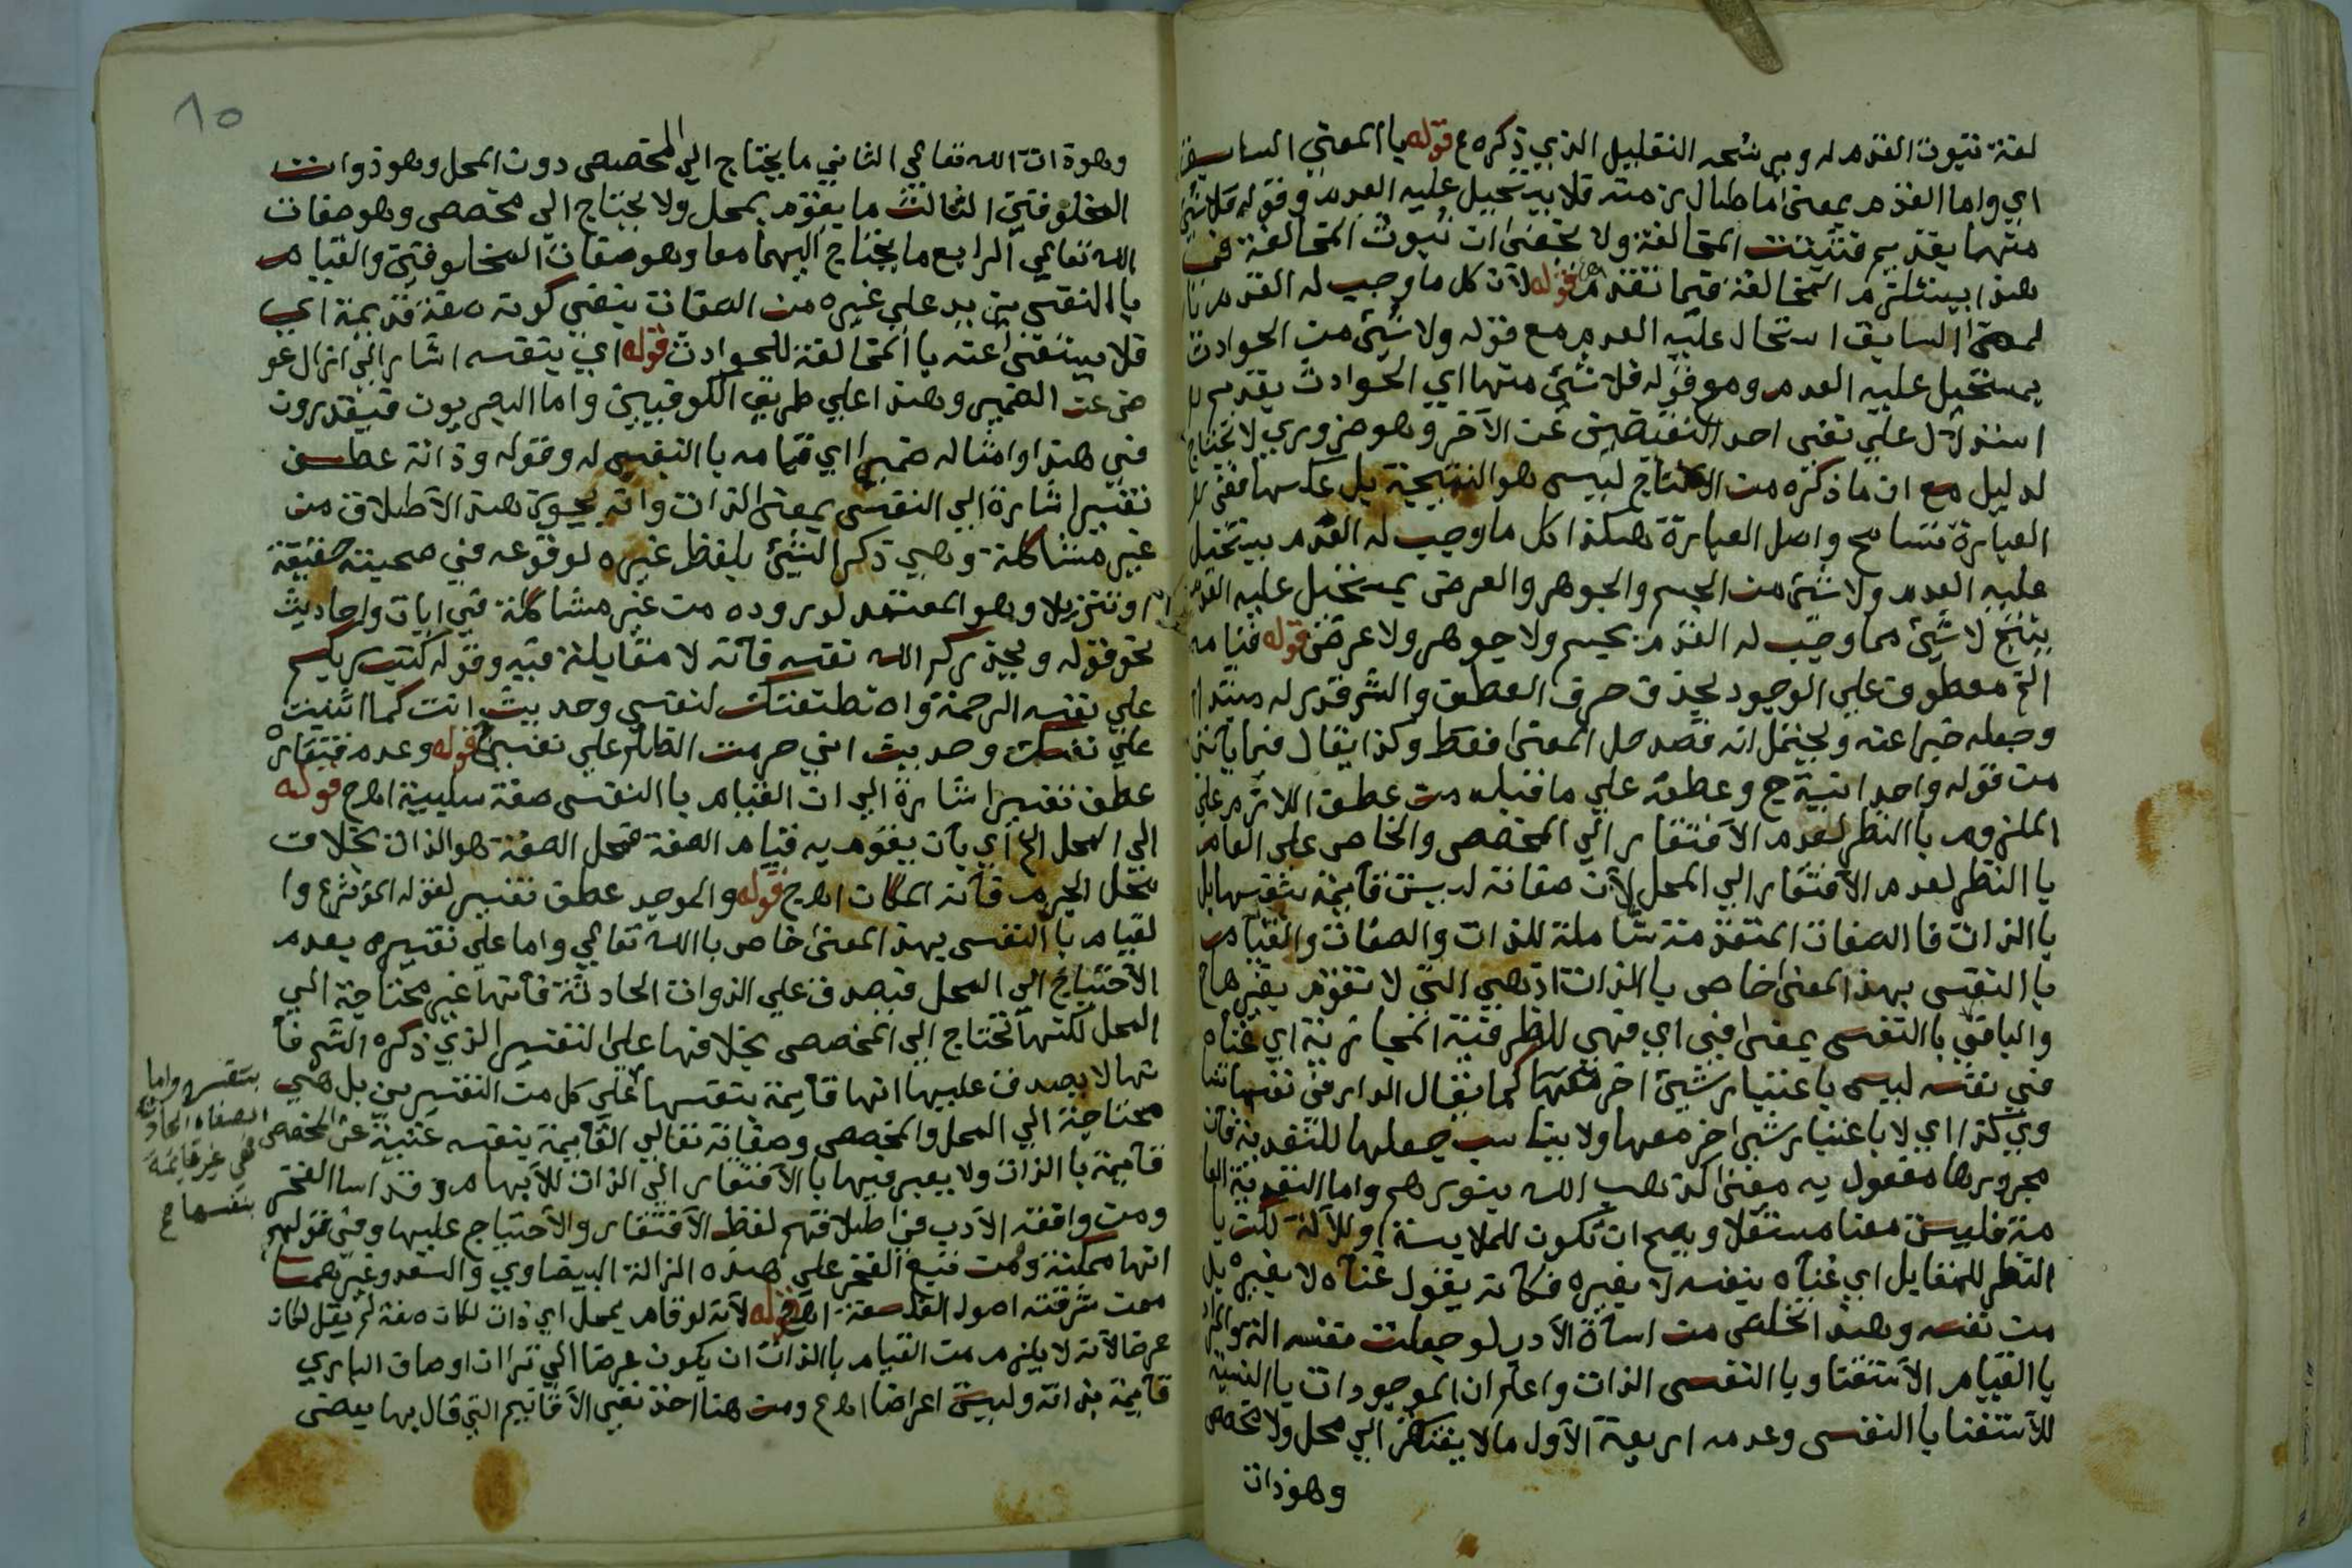 لفة ثبوت القدم له ويرشحه التعليل الذي ذكره ع قوله باالمعني السابق
اي واما القدم بمعنى ما طال زمنه فلا يستحيل عليه العدم وقوله فلا شئ
منها بقديم فتثبت المخالفة ولا يخفى ان ثبوت المخالفة في
هذا يستلزم المخالفة فيما تقدم قوله لان كل ما وجب له القدم با
لمعنى السابق استحال عليه العدم مع قوله ولا شئ من الحوادث
يستحيل عليه العدم ومع قوله فلا شئ منها اي الحوادث بقديم
استدلال علي نفى احد النقيضين عن الآخر وهو ضروري لا يحتاج
لدليل مع ان ما ذكره من الانتاج ليس هو النتيجة بل عكسها ففى
العبارة تسامح واصل العبارة هكذا كل ما وجب له القدم يستحيل
عليه العدم ولا شئ من الجسم والجوهر والعرض يستحيل عليه العدم
ينتج لا شئ مما وجب له القدم بجسم ولا جوهر ولا عرض قوله قيامه
الخ معطوف علي الوجود بحذف حرف العطف والش قدر له مبتدا
وجعله خبرا عنه ويحتمل انه قصد حل المعنى فقط وكذا يقال فيما ياتى
من قوله واحدانية ح وعطفه علي ما قبله من عطف اللازم علي
الملزوم باالنظر لعدم الافتقار الي المخصص والخاص على العام
باالنظر لعدم الافتقار الي المحل لان صفاته ليست قائمة بنفسها بل
باالذات فاالصفات المتقدمة شاملة للذات والصفات والقيام
باالنفس بهذ المعنى خاص باالذات اذ هي التى لا تقوم بغيرها ح
والبا فى باالنفس بمعنى في اي فهي للظرفية المجازية اي غناه
في نفسه ليس باعتبار شئ اخر كما يقال الدار في نفسها تسا
وي كذا اي لا باعتبار شئ اخر معها ولا يناسب جعلها للتعدية فان
مجرورها مفعول به معنى كذهب الله بنورهم واما التعدية العا
مة فليست معنا مستقلا ويصح ان تكون للملابسة او للآلة لكن با
النظر للمقابل اي غناه بنفسه لا بغيره فكانه يقول غناه لا بغيره بل
من نفسه وهذ اخلص من اساة الأدب لو جعلت نفسه الة والمراد
باالقيام الاستغنا وباالنفس الذات واعلم ان الموجودات باالنسبة
للاستغنا باالنفس وعدمه اربعة الاول ما لا يفتقر الي محل ولا مخصص
وهو ذات
وهو ذات الله تعالي الثاني ما يحتاج الي المخصص دون المحل وهو ذوات
المخلوقين الثالث ما يقوم بمحل ولا يحتاج الي مخصص وهو صفات
الله تعالي الرابع ما يحتاج اليهما معا وهو صفات المخلوقين والقيام
باالنفس يزيد علي غيره من الصفات بنفي كونه صفة قديمة اي
فلا يستغنى عنه باالمخالفة للحوادث قوله اي بنفسه اشار الي ان ال عو
ض عن الضمير وهذا علي طريق الكوفيين واما البصريون فيقدرون
في هذا وامثاله ضميرا اي قيامه باالنفس له وقوله وذاته عطف
تفسير اشارة الي النفس بمعنى الذات وانه يجوز هذ الاطلاق من
غير مشاكلة وهي ذكر الشئ بلفظ غيره لوقوعه في صحبته حقيقة
او تنزيلا وهو المعتمد لوروده من غير مشاكلة في ايات واحاديث
نحو قوله ويحذركم الله نفسه فانه لا مقابلة فيه وقوله كتب ربكم
علي نفسه الرحمة واصطنعتك لنفسي وحديث انت كما اثنيت
علي نفسك وحديث اني حرمت الظلم علي نفسي قوله وعدم فتقاره
عطف تفسير اشارة الي ان القيام باالنفس صفة سلبية اهـ ح قوله
الي المحل الخ اي بان يقوم به قيام الصفة فمحل الصفة هو الذات بخلاف
محل الجرم فانه المكان اهـ ح قوله والموجد عطف تفسير لقوله المؤثر ع وا
لقيام باالنفس بهذ المعنى خاص باالله تعالي واما علي تفسيره بعدم
الاحتياج الي المحل فيصدق علي الذوات الحادثة فانها غير محتاجة الي
المحل لكنها تحتاج الي المخصص بخلافها على التفسير الذي ذكره الش فا
نها لا يصدق عليها انها قائمة بنفسها علي كل من التفسيرين بل هي
محتاجة الي المحل والمخصص وصفاته تعالي القائمة بنفسه غنية عن المخصص
قائمة باالذات ولا يعبر فيها باالافتقار الي الذات للابهام وقد اسا الفخر
ومن وافقه الأدب في اطلاقهم لفظ الافتقار والاحتياج عليها وفى قولهم
انها ممكنة وممن تبع الفخر علي هذه الزالة البيضاوي والسعد وغيرهما
ممن شرقته اصول الفلسفة اهـ ح قوله لانه لو قام بمحل اي ذات لكان صفة لم يقل لكان
عرضا لانه لا يلزم من القيام باالذات ان يكون عرضا الي ترا ان اوصاف الباري
قائمة بذاته وليست اعراضا اهـ ع ومن هنا اخذ نفي الاقانيم التي قال بها بعض
بنفسه واما
الصفات الحادثة
فهي غير قائمة
بنفسها ح